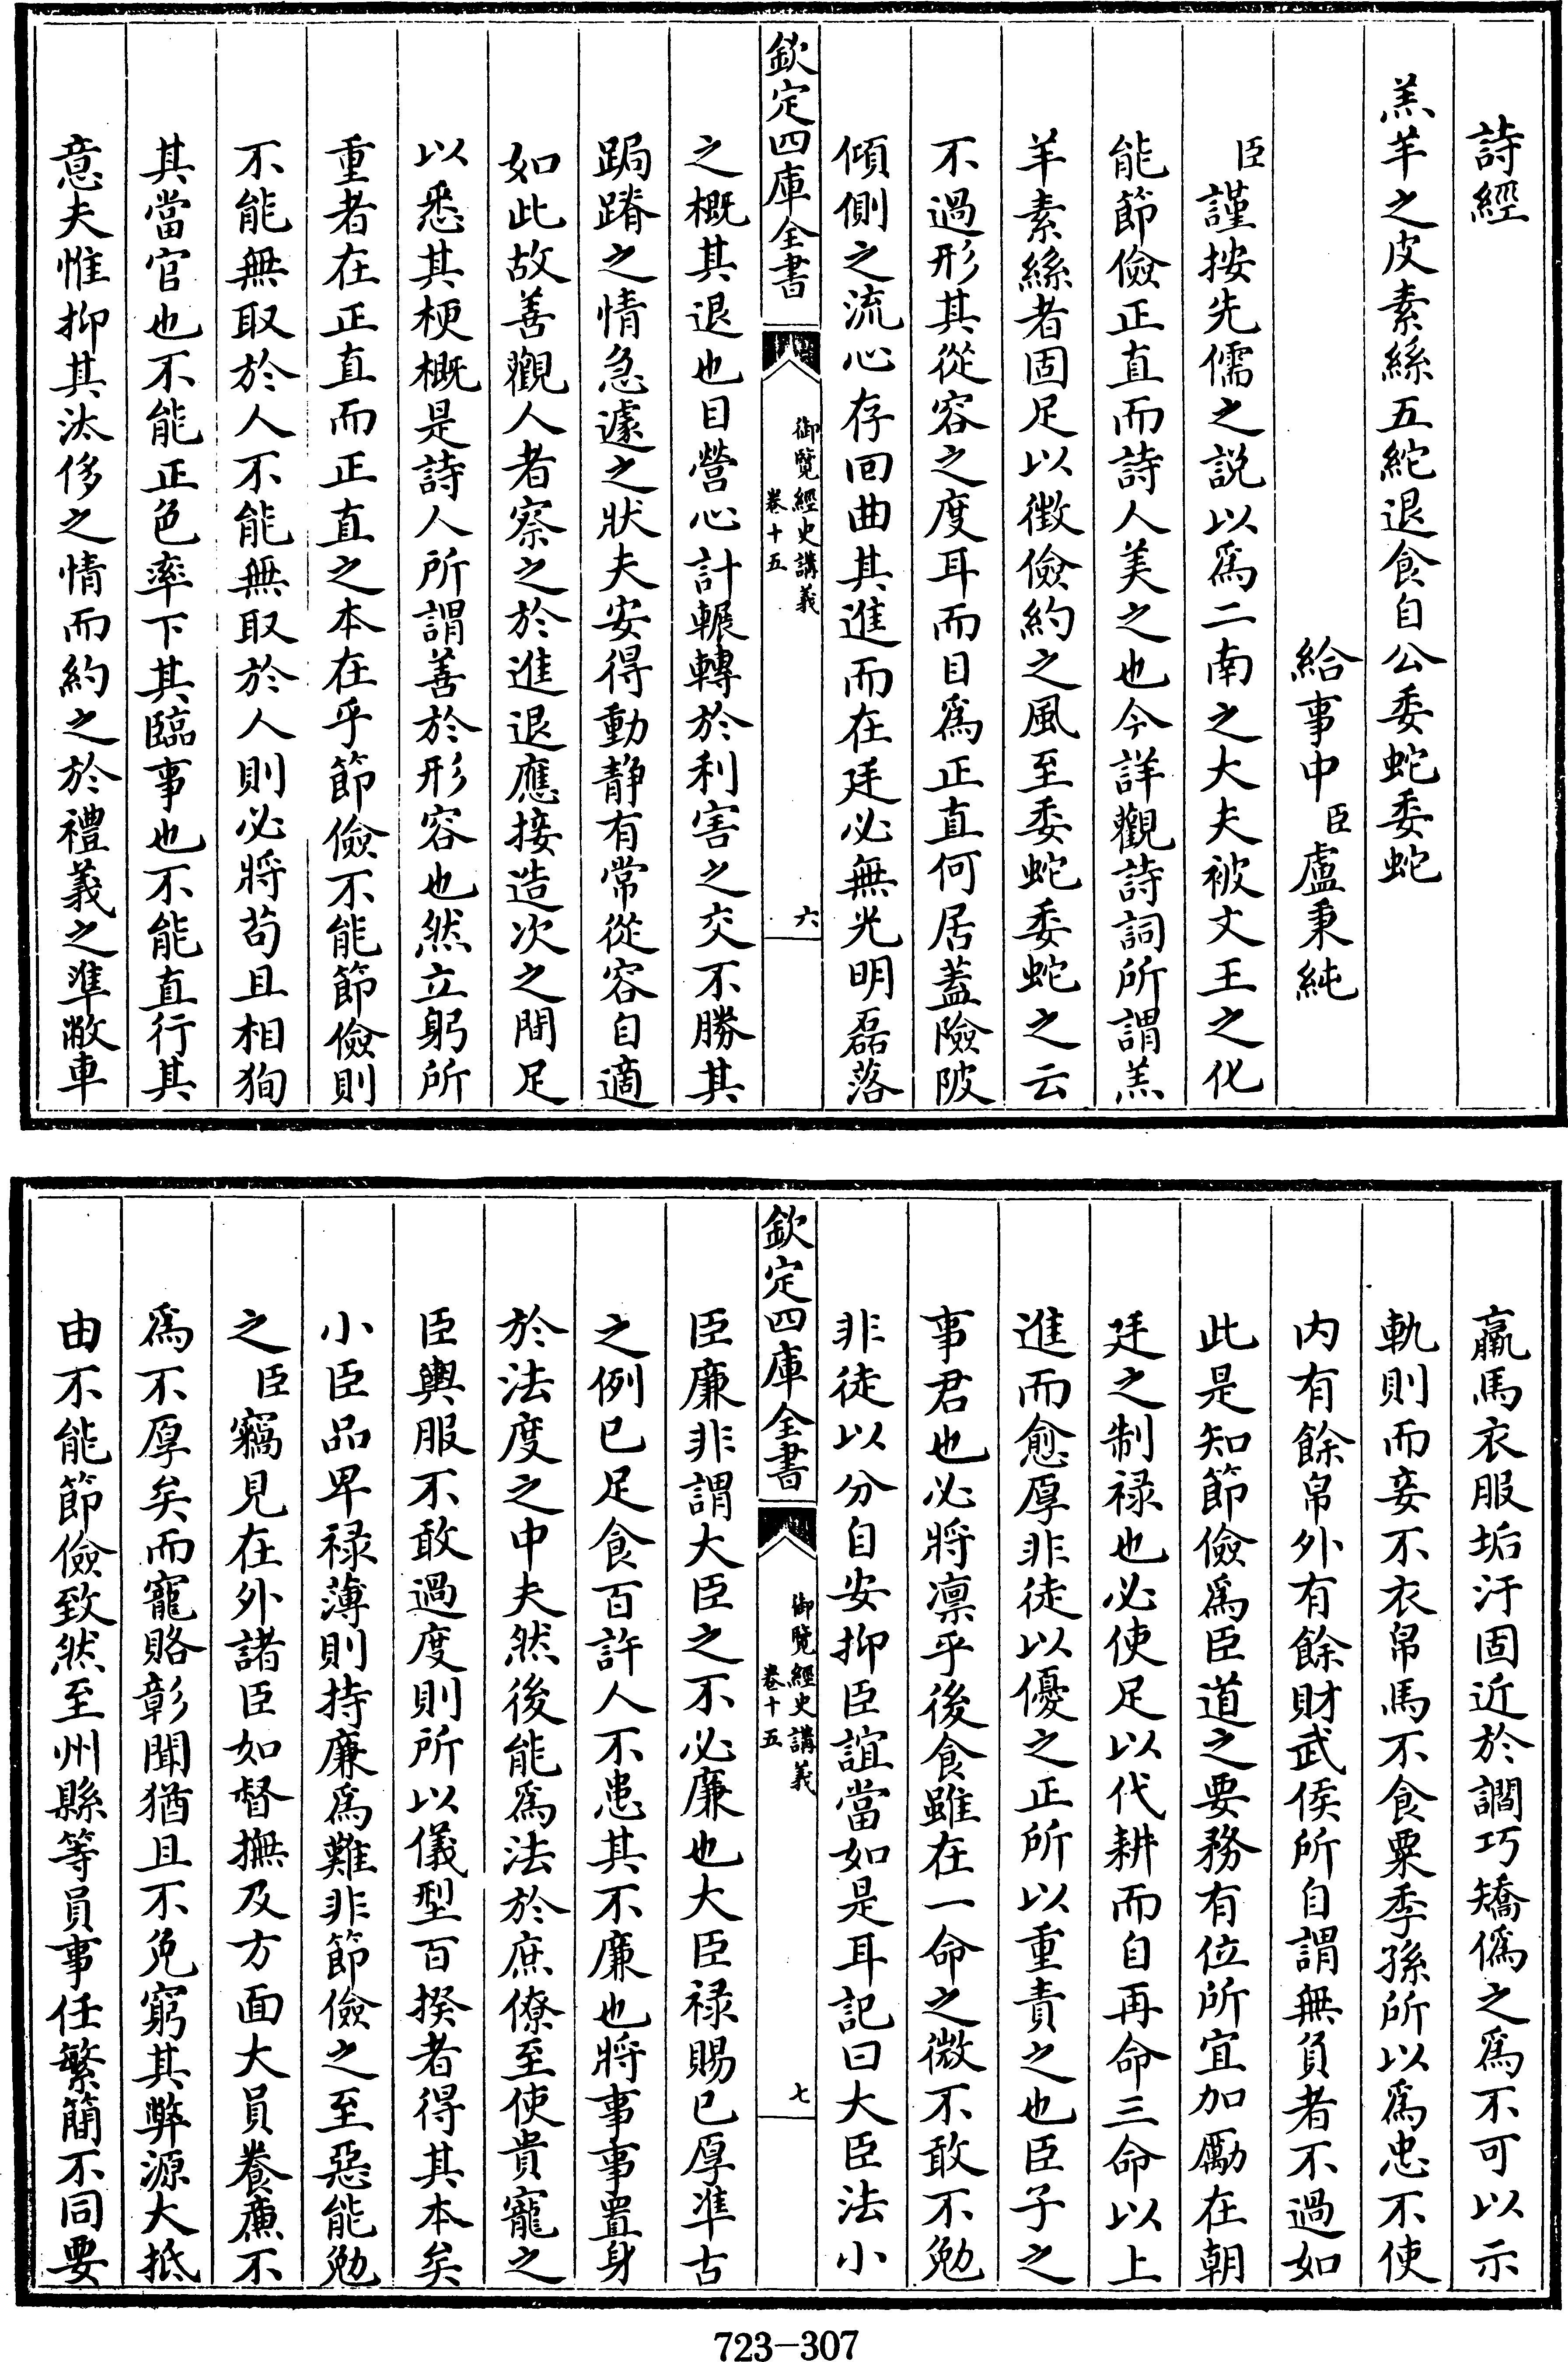 詩經
羔羊之皮素絲五紽退食自公委蛇委蛇
給事中臣盧秉純
臣謹按先儒之説以爲二南之大夫被文王之化
能節儉正直而詩人美之也今詳觀詩詞所謂羔
羊素絲者固足以徵儉約之風至委蛇委蛇之云
不過形其從容之度耳而目爲正直何居蓋險陂
傾側之流心存回曲其進而在廷必無光明磊落
欽定四庫全書
御覽經史講義
卷十五
六
之概其退也目營心計輾轉於利害之交不勝其
跼蹐之情急遽之狀夫安得動静有常從容自適
如此故善觀人者察之於進退應接造次之間足
以悉其梗概是詩人所謂善於形容也然立躬所
重者在正直而正直之本在乎節儉不能節儉則
不能無取於人不能無取於人則必將苟且相狥
其當官也不能正色率下其臨事也不能直行其
意夫惟抑其汰侈之情而約之於禮義之準敝車
羸馬衣服垢汙固近於譎巧矯僞之爲不可以示
軌則而妾不衣帛馬不食粟季孫所以爲忠不使
内有餘帛外有餘財武侯所自謂無負者不過如
此是知節儉爲臣道之要務有位所宜加勵在朝
廷之制禄也必使足以代耕而自再命三命以上
進而愈厚非徒以優之正所以重責之也臣子之
事君也必將凛乎後食雖在一命之微不敢不勉
非徒以分自安抑臣誼當如是耳記曰大臣法小
欽定四庫全書
御覽經史講義
卷十五
七
臣廉非謂大臣之不必廉也大臣禄賜已厚準古
之例已足食百許人不患其不廉也將事事置身
於法度之中夫然後能爲法於庶僚至使貴寵之
臣輿服不敢過度則所以儀型百揆者得其本矣
小臣品卑禄薄則持廉爲難非節儉之至惡能勉
之臣竊見在外諸臣如督撫及方面大員養廉不
爲不厚矣而寵賂彰聞猶且不免窮其弊源大抵
由不能節儉致然至州縣等員事任繁簡不同要
723-307